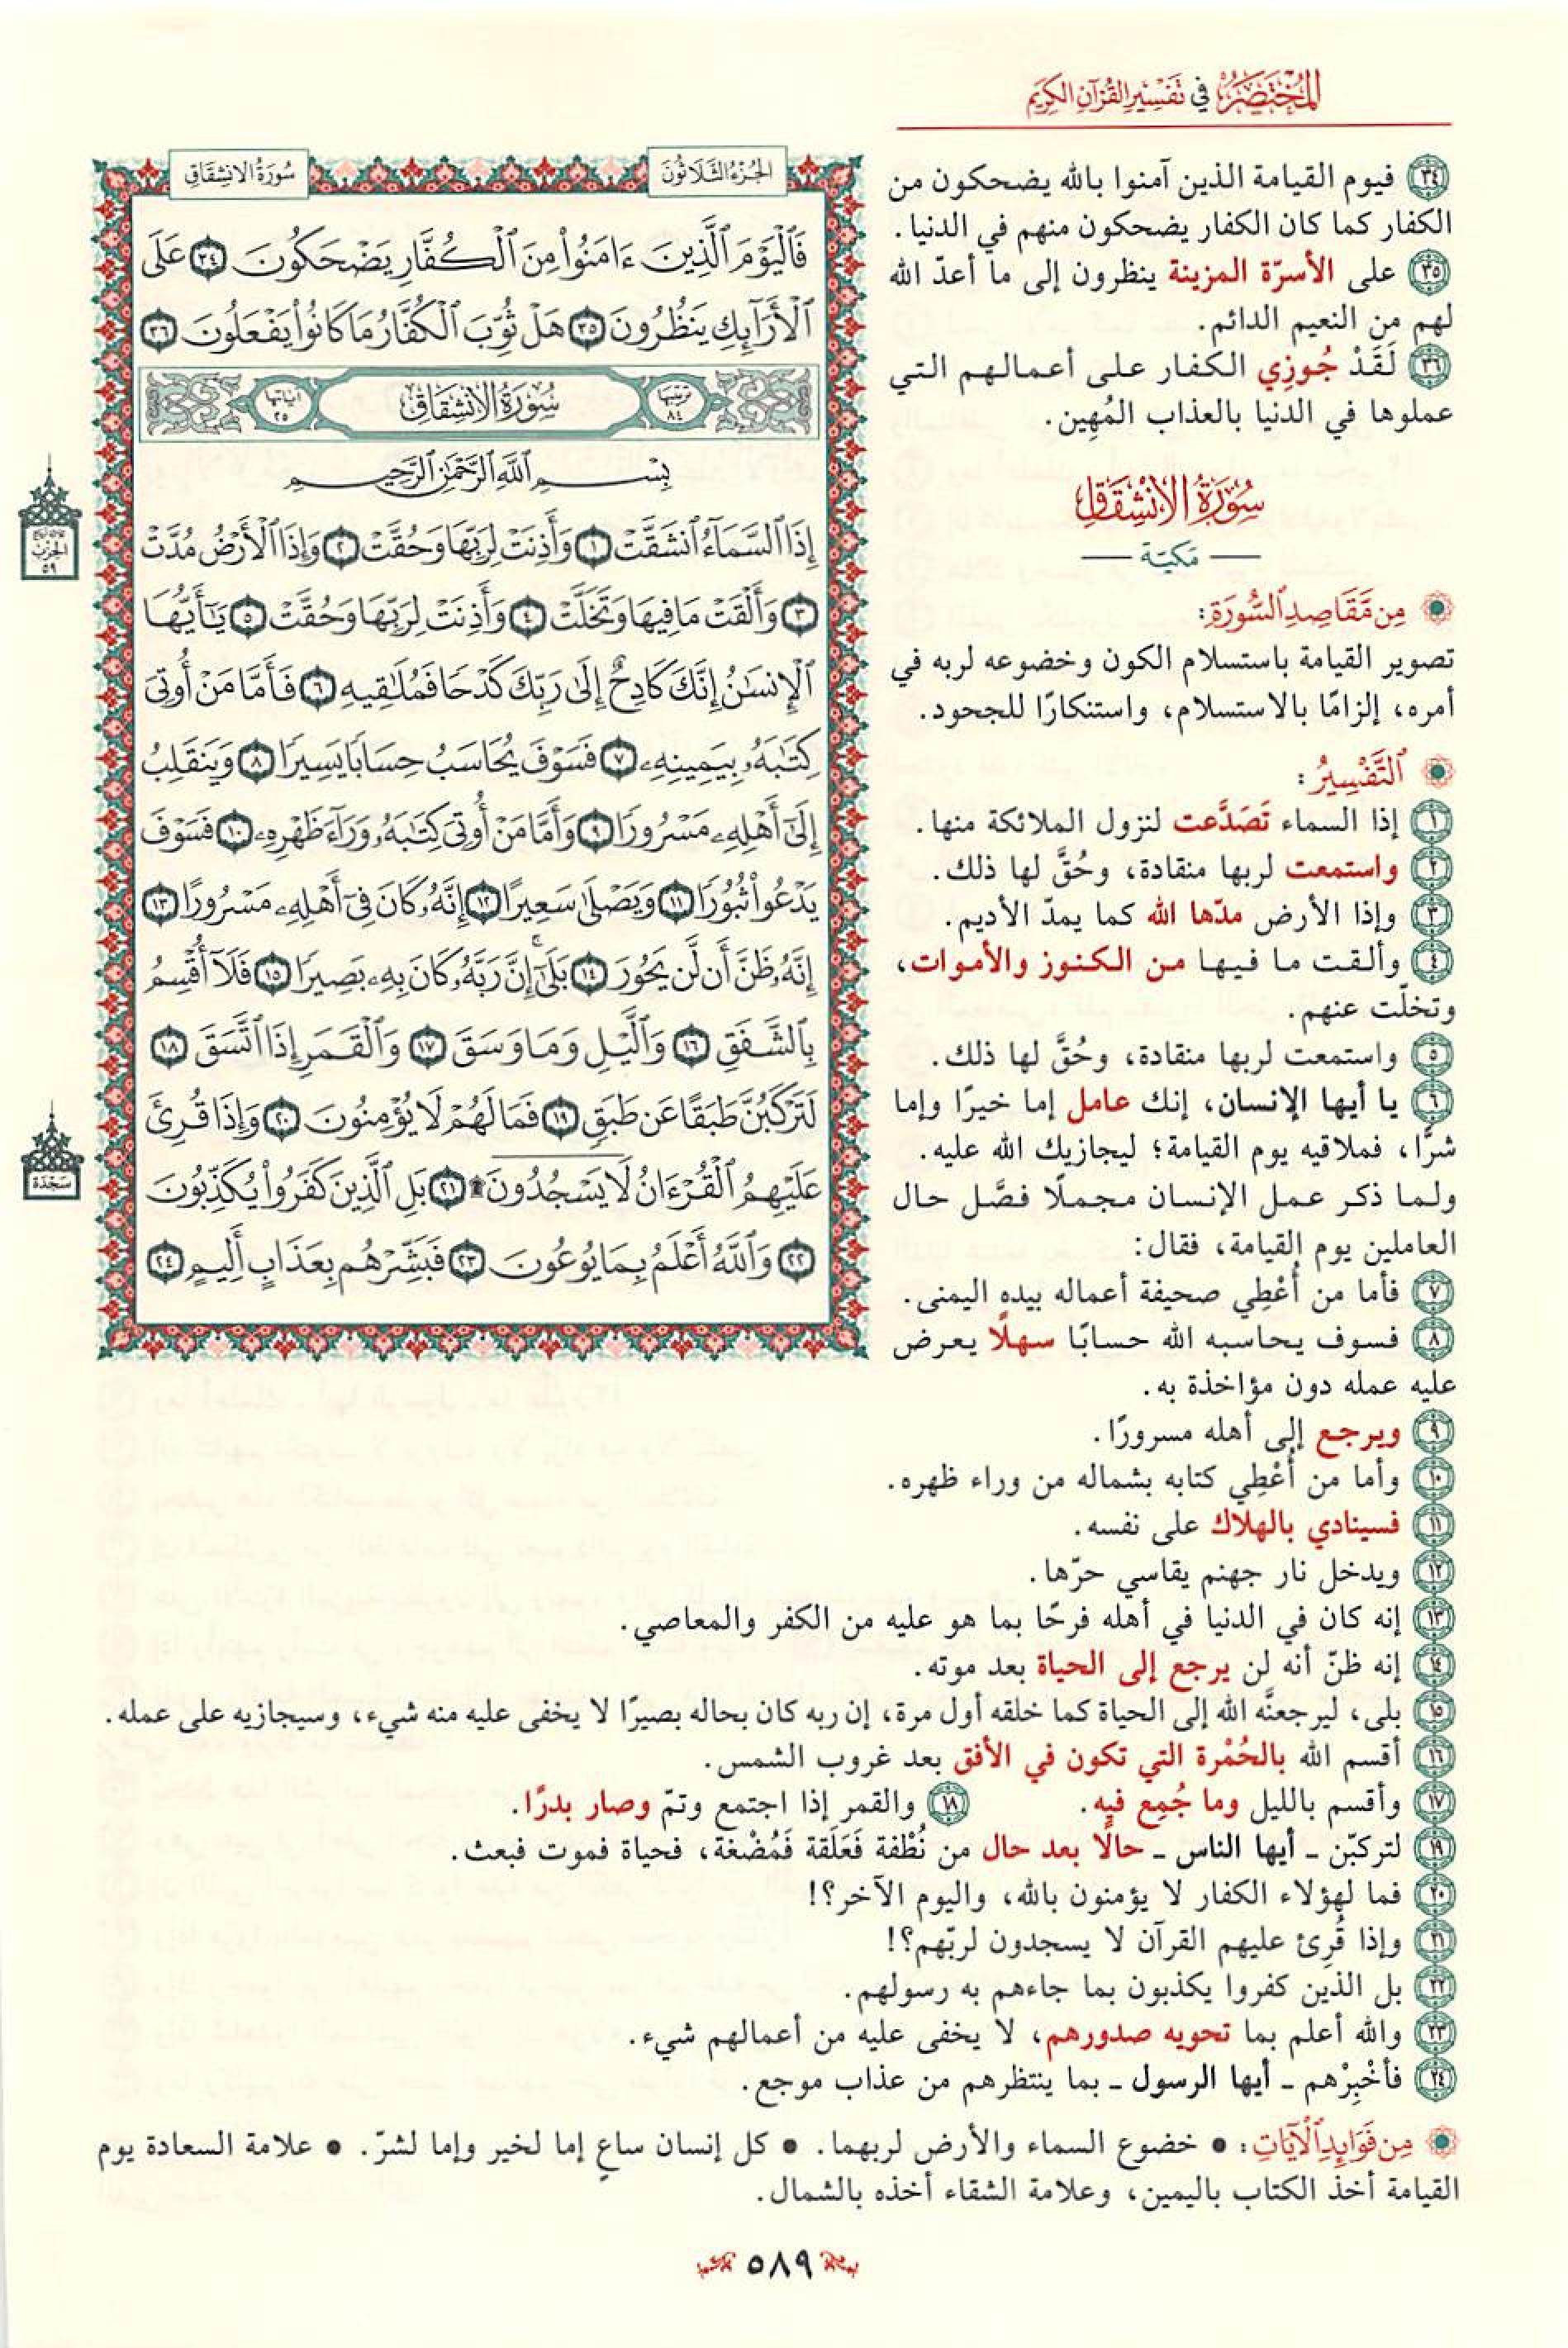 المُخْتَصَرُ فِي تَفْسِيرِ القُرْآنِ الكَرِيمِ
الجُزْءُ الثَّلَاثُونَ
سُورَةُ الانشِقَاقِ
فَٱلْيَوْمَ ٱلَّذِينَ ءَامَنُوا۟ مِنَ ٱلْكُفَّارِ يَضْحَكُونَ ٣٤ عَلَى
ٱلْأَرَآئِكِ يَنظُرُونَ ٣٥ هَلْ ثُوِّبَ ٱلْكُفَّارُ مَا كَانُوا۟ يَفْعَلُونَ ٣٦
ترتيبها ٨٤ سُورَةُ الانشِقَاقِ آياتها ٢٥
بِسْمِ ٱللَّهِ ٱلرَّحْمَٰنِ ٱلرَّحِيمِ
إِذَا ٱلسَّمَآءُ ٱنشَقَّتْ ١ وَأَذِنَتْ لِرَبِّهَا وَحُقَّتْ ٢ وَإِذَا ٱلْأَرْضُ مُدَّتْ
٣ وَأَلْقَتْ مَا فِيهَا وَتَخَلَّتْ ٤ وَأَذِنَتْ لِرَبِّهَا وَحُقَّتْ ٥ يَٰٓأَيُّهَا
ٱلْإِنسَٰنُ إِنَّكَ كَادِحٌ إِلَىٰ رَبِّكَ كَدْحًا فَمُلَٰقِيهِ ٦ فَأَمَّا مَنْ أُوتِىَ
كِتَٰبَهُۥ بِيَمِينِهِۦ ٧ فَسَوْفَ يُحَاسَبُ حِسَابًا يَسِيرًا ٨ وَيَنقَلِبُ
إِلَىٰٓ أَهْلِهِۦ مَسْرُورًا ٩ وَأَمَّا مَنْ أُوتِىَ كِتَٰبَهُۥ وَرَآءَ ظَهْرِهِۦ ١٠ فَسَوْفَ
يَدْعُوا۟ ثُبُورًا ١١ وَيَصْلَىٰ سَعِيرًا ١٢ إِنَّهُۥ كَانَ فِىٓ أَهْلِهِۦ مَسْرُورًا ١٣
إِنَّهُۥ ظَنَّ أَن لَّن يَحُورَ ١٤ بَلَىٰٓۚ إِنَّ رَبَّهُۥ كَانَ بِهِۦ بَصِيرًا ١٥ فَلَآ أُقْسِمُ
بِٱلشَّفَقِ ١٦ وَٱلَّيْلِ وَمَا وَسَقَ ١٧ وَٱلْقَمَرِ إِذَا ٱتَّسَقَ ١٨
لَتَرْكَبُنَّ طَبَقًا عَن طَبَقٍ ١٩ فَمَا لَهُمْ لَا يُؤْمِنُونَ ٢٠ وَإِذَا قُرِئَ
عَلَيْهِمُ ٱلْقُرْءَانُ لَا يَسْجُدُونَ ۩ ٢١ بَلِ ٱلَّذِينَ كَفَرُوا۟ يُكَذِّبُونَ
٢٢ وَٱللَّهُ أَعْلَمُ بِمَا يُوعُونَ ٢٣ فَبَشِّرْهُم بِعَذَابٍ أَلِيمٍ ٢٤
الحزب
٥٩
سَجْدَة
٣٤ فيوم القيامة الذين آمنوا بالله يضحكون من
الكفار كما كان الكفار يضحكون منهم في الدنيا.
٣٥ على الأسرّة المزينة ينظرون إلى ما أعدّ الله
لهم من النعيم الدائم.
٣٦ لَقَدْ جُوزِي الكفار على أعمالهم التي
عملوها في الدنيا بالعذاب المُهِين.
سُورَةُ الانْشِقَاقِ
مَكيّة
مِن مَّقَاصِدِ ٱلسُّورَةِ:
تصوير القيامة باستسلام الكون وخضوعه لربه في
أمره، إلزامًا بالاستسلام، واستنكارًا للجحود.
ٱلتَّفْسِيرُ:
١ إذا السماء تَصَدَّعت لنزول الملائكة منها.
٢ واستمعت لربها منقادة، وحُقَّ لها ذلك.
٣ وإذا الأرض مدّها الله كما يمدّ الأديم.
٤ وألقت ما فيها من الكنوز والأموات،
وتخلّت عنهم.
٥ واستمعت لربها منقادة، وحُقَّ لها ذلك.
٦ يا أيها الإنسان، إنك عامل إما خيرًا وإما
شرًّا، فملاقيه يوم القيامة؛ ليجازيك الله عليه.
ولما ذكر عمل الإنسان مجملًا فصَّل حال
العاملين يوم القيامة، فقال:
٧ فأما من أُعْطِي صحيفة أعماله بيده اليمنى.
٨ فسوف يحاسبه الله حسابًا سهلًا يعرض
عليه عمله دون مؤاخذة به.
٩ ويرجع إلى أهله مسرورًا.
١٠ وأما من أُعْطِي كتابه بشماله من وراء ظهره.
١١ فسينادي بالهلاك على نفسه.
١٢ ويدخل نار جهنم يقاسي حرّها.
١٣ إنه كان في الدنيا في أهله فرحًا بما هو عليه من الكفر والمعاصي.
١٤ إنه ظنّ أنه لن يرجع إلى الحياة بعد موته.
١٥ بلى، ليرجعنَّه الله إلى الحياة كما خلقه أول مرة، إن ربه كان بحاله بصيرًا لا يخفى عليه منه شيء، وسيجازيه على عمله.
١٦ أقسم الله بالحُمْرة التي تكون في الأفق بعد غروب الشمس.
١٧ وأقسم بالليل وما جُمِع فيه. ١٨ والقمر إذا اجتمع وتمّ وصار بدرًا.
١٩ لتركبّن ـ أيها الناس ـ حالًا بعد حال من نُطْفة فَعَلَقة فَمُضْغة، فحياة فموت فبعث.
٢٠ فما لهؤلاء الكفار لا يؤمنون بالله، واليوم الآخر؟!
٢١ وإذا قُرِئ عليهم القرآن لا يسجدون لربّهم؟!
٢٢ بل الذين كفروا يكذبون بما جاءهم به رسولهم.
٢٣ والله أعلم بما تحويه صدورهم، لا يخفى عليه من أعمالهم شيء.
٢٤ فأخْبِرْهم ـ أيها الرسول ـ بما ينتظرهم من عذاب موجع.
مِن فَوَائِدِ ٱلْآيَاتِ: • خضوع السماء والأرض لربهما. • كل إنسان ساعٍ إما لخير وإما لشرّ. • علامة السعادة يوم
القيامة أخذ الكتاب باليمين، وعلامة الشقاء أخذه بالشمال.
٥٨٩